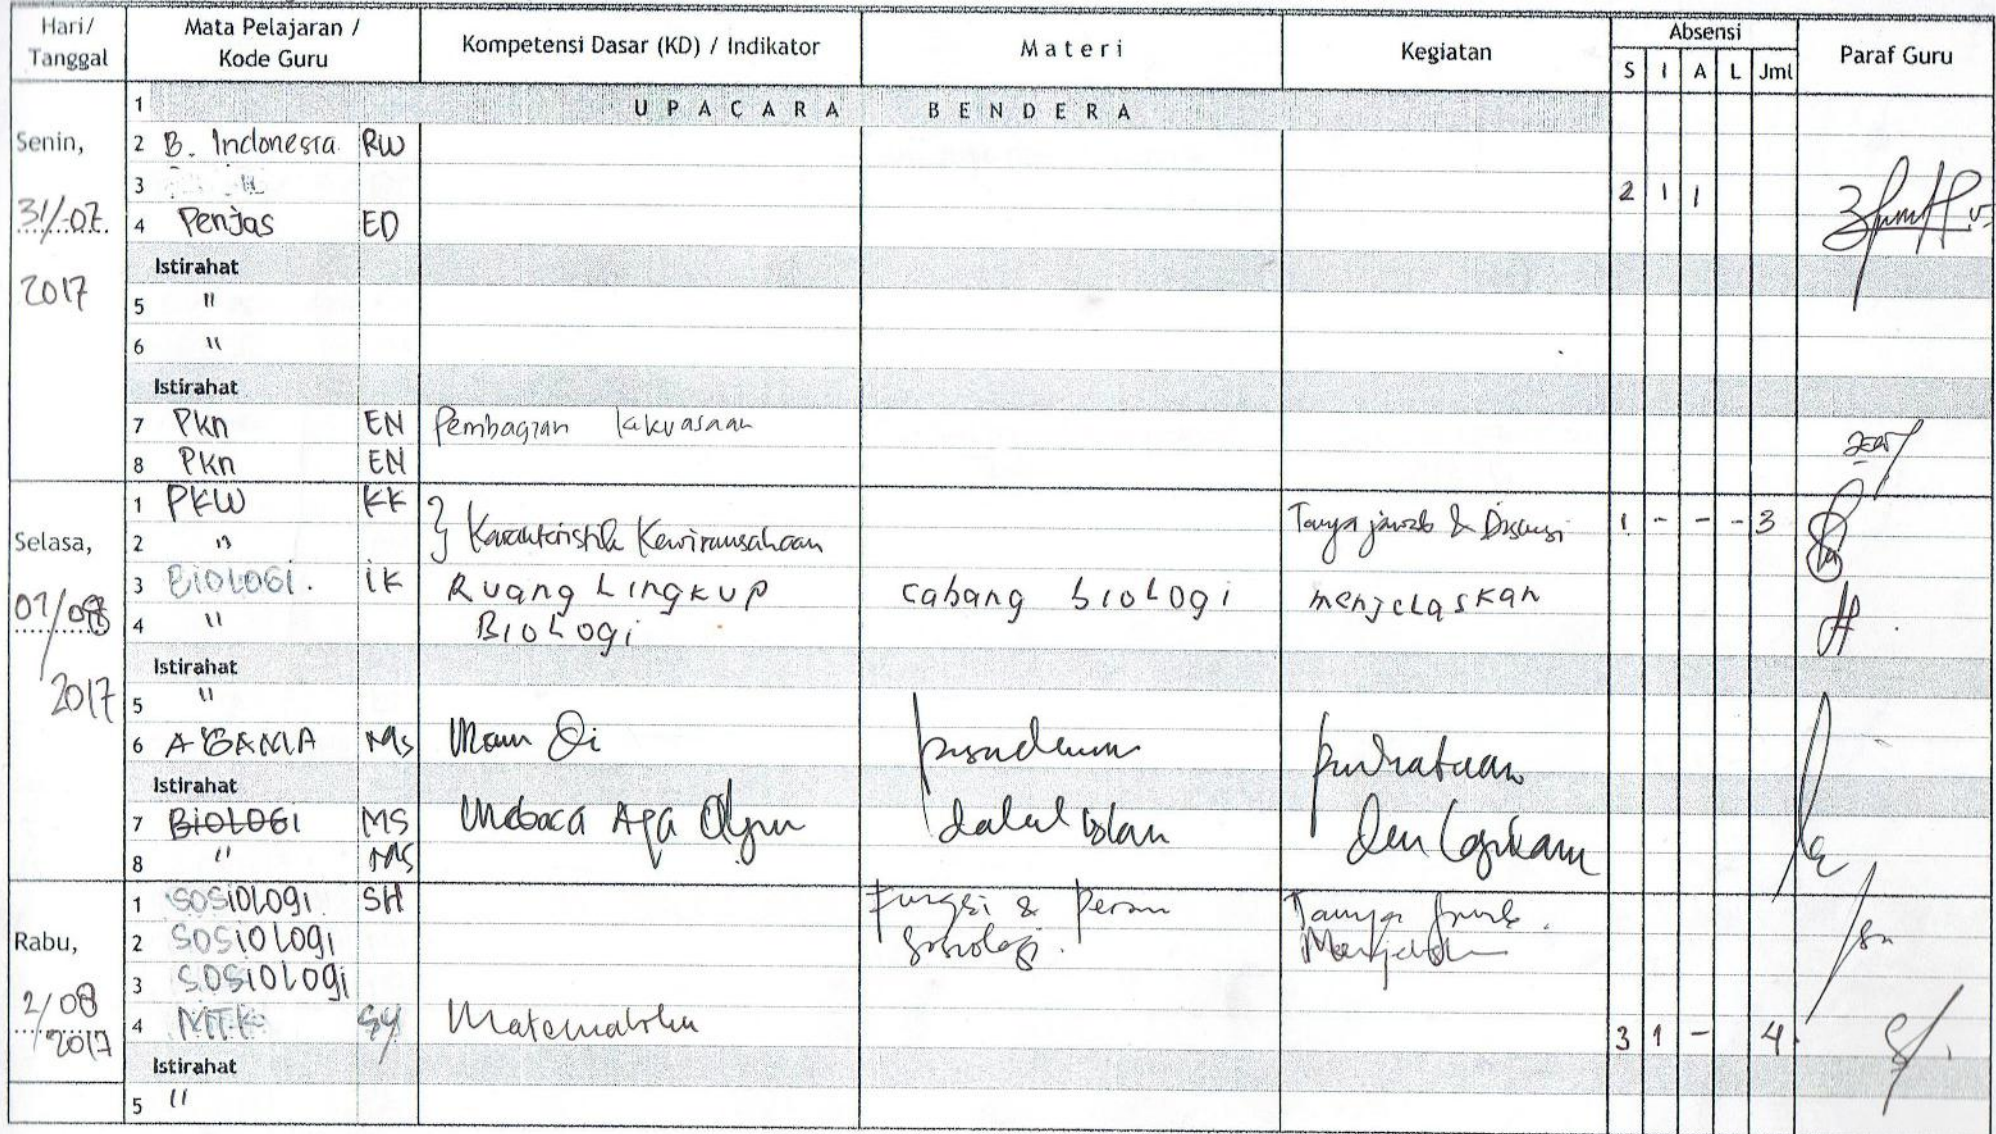 Hari/ Tanggal Mata Pelajaran / Kode Guru Kompetensi Dasar (KD) / Indikator Materi Kegiatan Absensi Paraf Guru
S I A L Jml
Senin, 31/-07. 2017
1 UPACARA BENDERA
2 B. Indonesia RW
3 2 1 1
4 Penjas ED
Istirahat
5 "
6 "
Istirahat
7 Pkn EN Pembagian kekuasaan
8 Pkn EN
Selasa, 01/08 2017
1 PKW KK
2 " } Karakteristik Kewirausahaan Tanya jawab & Diskusi 1 - - - 3
3 BiOLOGi. iK Ruang Lingkup cabang biologi menjelaskan
4 " Biologi
Istirahat
5 "
6 AGAMA MS
Istirahat
7 BiOLOGi MS dalam Islam
8 " MS
Rabu, 2/08 2017
1 SOSiOLOgi. SH Fungsi & Peran Tanya
2 SOSiOLOgi Sosiologi.
3 SOSiOLOgi
4 MTK SY Matematika 3 1 - 4
Istirahat
5 "